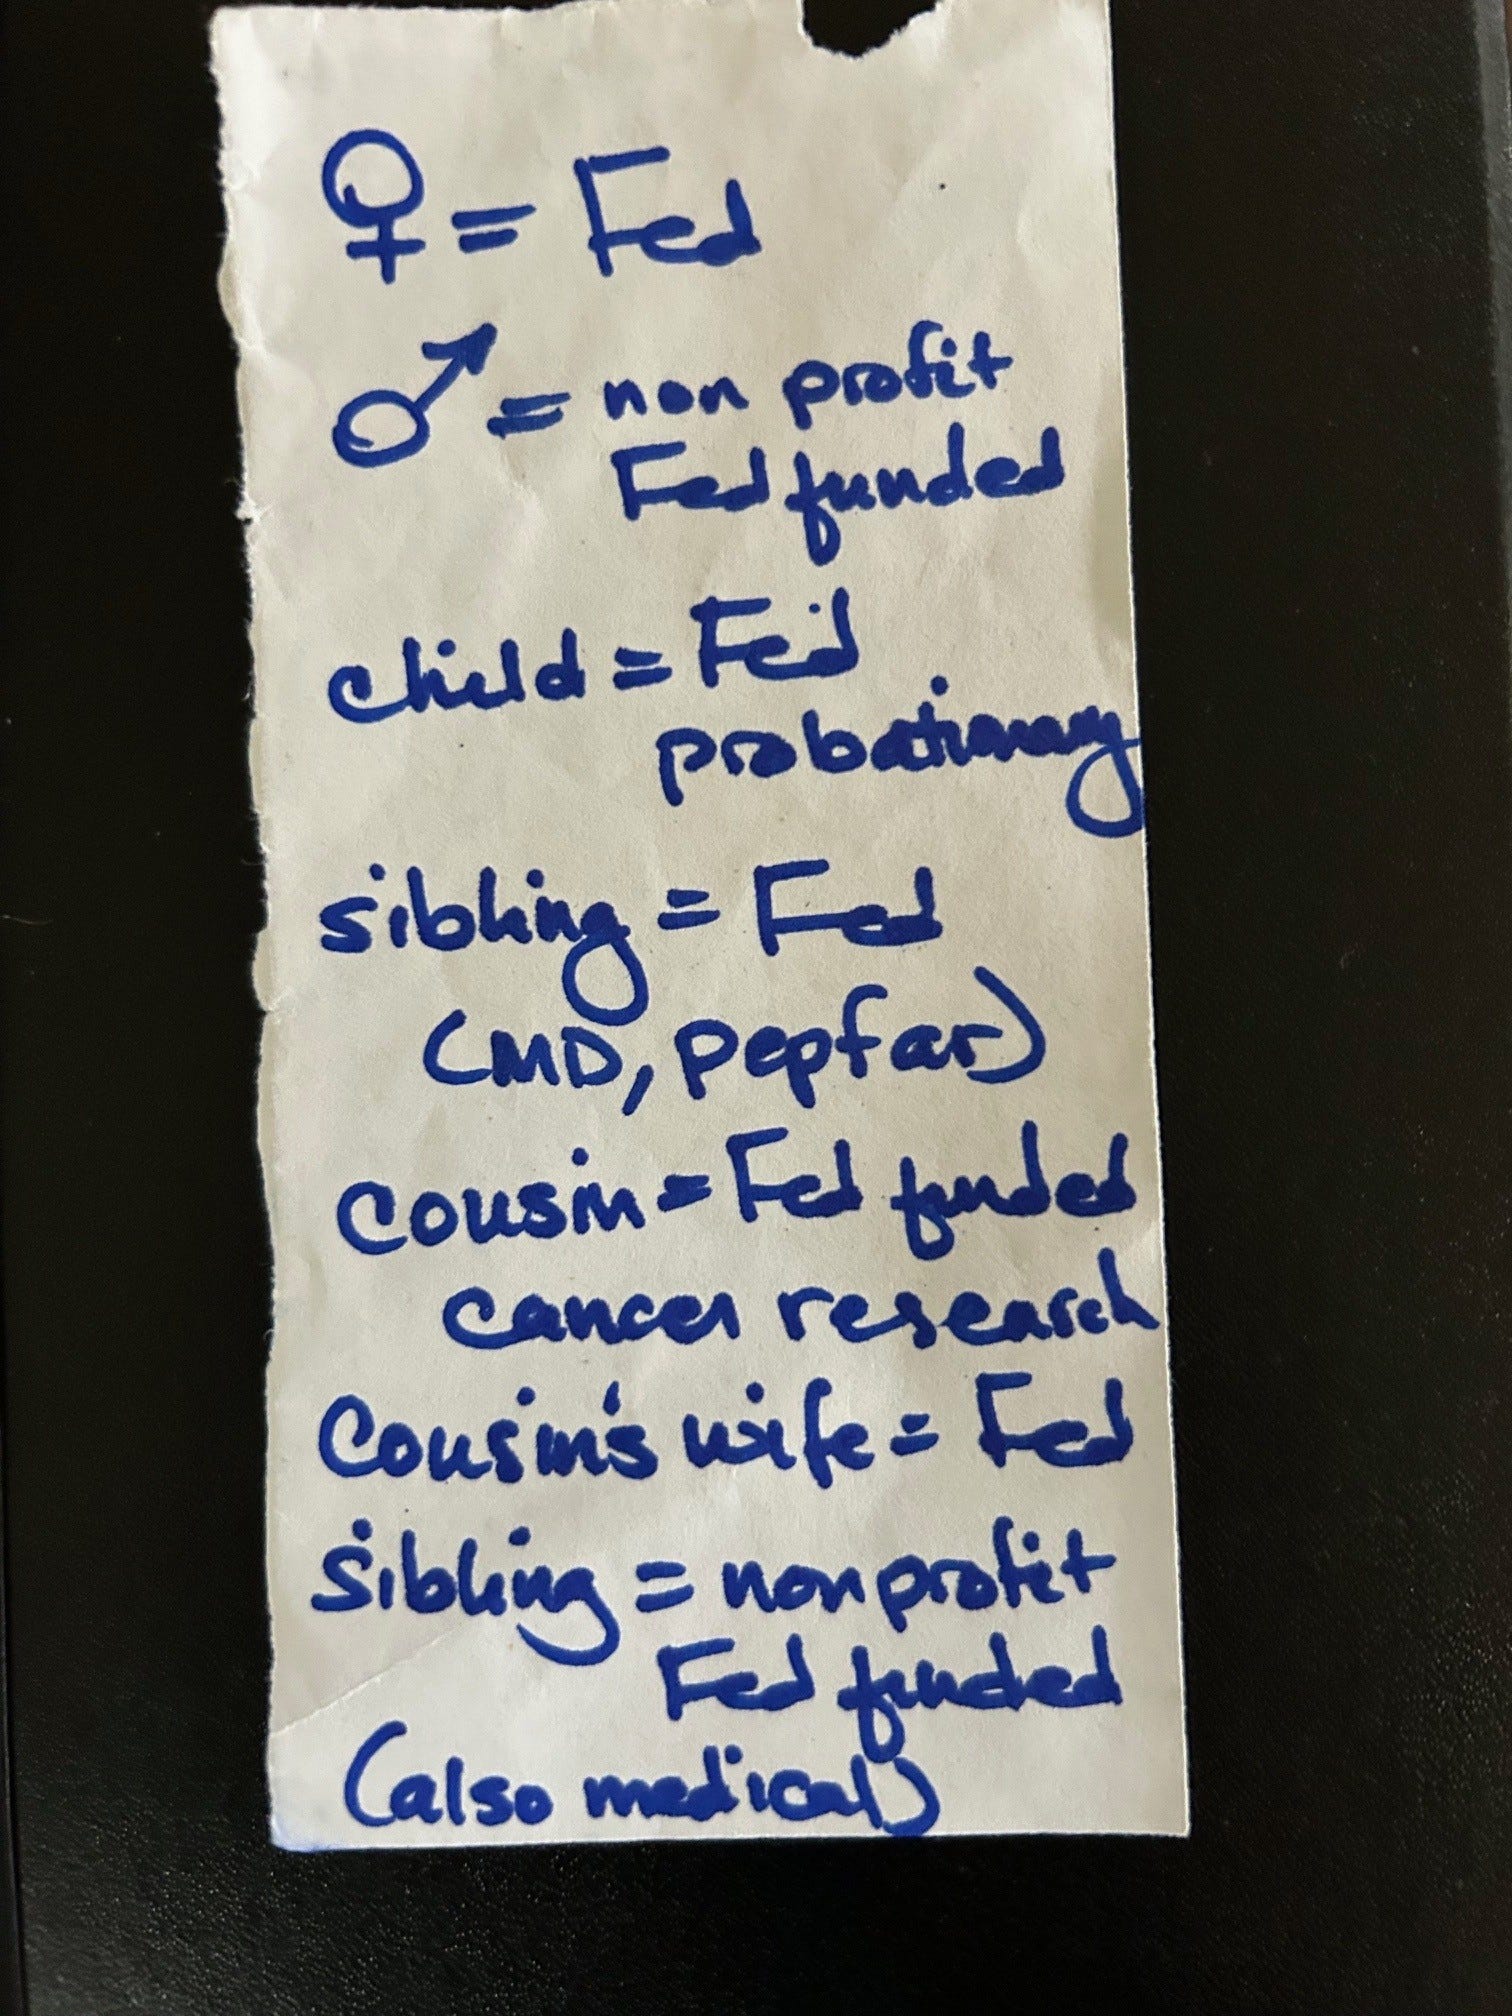 ♀ = Fed
♂ = non profit
Fed funded
child = Fed
probationary
sibling = Fed
(MD, pepfar)
cousin = Fed funded
cancer research
Cousin's wife = Fed
Sibling = nonprofit
Fed funded
(also medical)